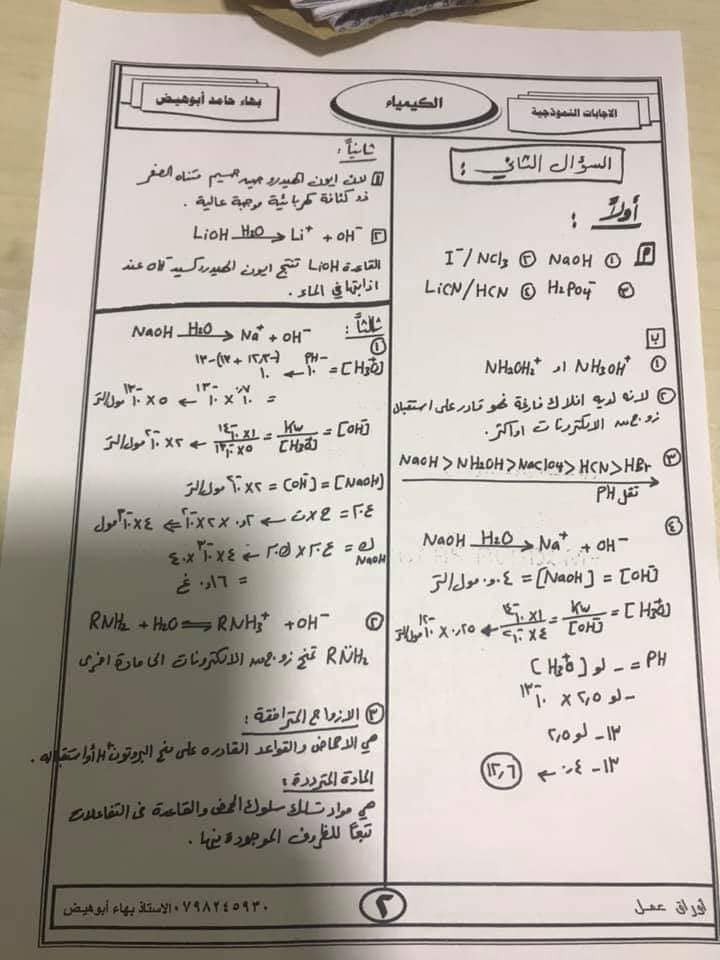 الاجابات النموذجية
الكيمياء
بهاء حامد أبوهيض
السؤال الثاني :
أولاً :
① NaOH ② I⁻/NCl₃
③ H₂PO₄⁻ ④ LiCN/HCN
ب
① NH₃OH⁺ او NH₂OH₂⁺
② لانه لديه افلاك فارغة فهو قادر على استقبال
زوج من الالكترونات او اكثر.
③ NaOH > NH₂OH > NaClO₄ > HCN > HBr
تقل PH
④
NaOH H₂O→ Na⁺ + OH⁻
[OH⁻] = [NaOH] = ٠,٠٤ مول/لتر
[H₃O⁺] = Kw/[OH⁻] = ١×١٠⁻¹⁴/٤×١٠⁻² ← ٠,٢٥ × ١٠⁻¹² مول/لتر
PH = - لو [H₃O⁺]
- لو ٢,٥ × ١٠⁻¹³
١٣ - لو ٢,٥
١٣ - ٠,٤ ← ١٢,٦
ثانياً :
① لان ايون الهيدروجين جسيم متناه الصغر
ذو كثافة كهربائية موجبة عالية .
② LiOH H₂O→ Li⁺ + OH⁻
القاعدة LiOH تنتج ايون الهيدروكسيد OH⁻ عند
اذابتها في الماء .
ثالثاً :
① NaOH H₂O→ Na⁺ + OH⁻
[H₃O⁺] = ١٠⁻ᴾᴴ ← ١٠
= ١٠٠٫٧ × ١٠⁻¹³ ← ٥ × ١٠⁻¹³ مول/لتر
[OH⁻] = Kw/[H₃O⁺] = ١×١٠⁻¹⁴/٥×١٠⁻¹³ ← ٢ × ١٠⁻² مول/لتر
[NaOH] = [OH⁻] = ٢ × ١٠⁻² مول/لتر
ع.م = ح × ت ← ٠,٢ × ٢ × ١٠⁻² ← ٤ × ١٠⁻³ مول
ك NaOH = ع.م × ك.م ← ٤ × ١٠⁻³ × ٤٠
= ٠,١٦ غ
② RNH₂ + H₂O ⇌ RNH₃⁺ + OH⁻
RNH₂ تمنح زوج من الالكترونات الى مادة اخرى
③ الازواج المترافقة :
هي الاحماض والقواعد القادره على منح البروتون H⁺ أو استقباله .
المادة المترددة :
هي مواد تسلك سلوك الحمض والقاعدة في التفاعلات
تبعاً للظروف الموجودة فيها .
أوراق عمل
٢
الاستاذ بهاء أبوهيض ٠٧٩٨٢٤٥٩٣٠